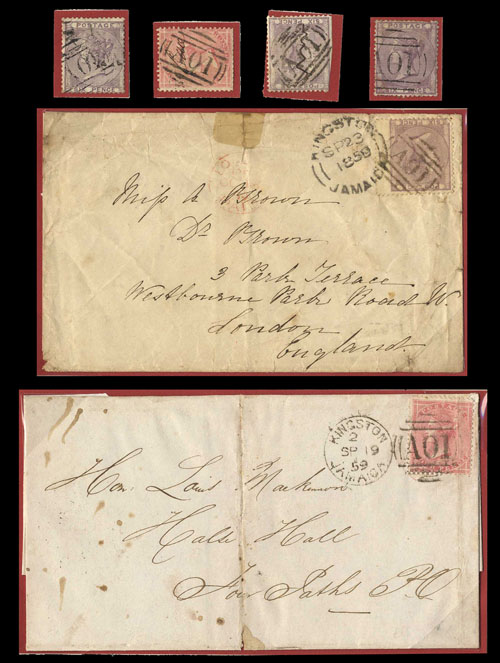 POSTAGE
SIX PENCE
A01
A01
SIX PENCE
A01
POSTAGE
SIX PENCE
A01
KINGSTON
SP 23
1859
JAMAICA
A01
Miss A Brown
Dr Brown
3 Park Terrace
Westbourne Park Road W.
London
England.
KINGSTON
2
SP 19
59
JAMAICA
A01
Hon. Louis Mackinnon
Halse Hall
Four Paths P.O